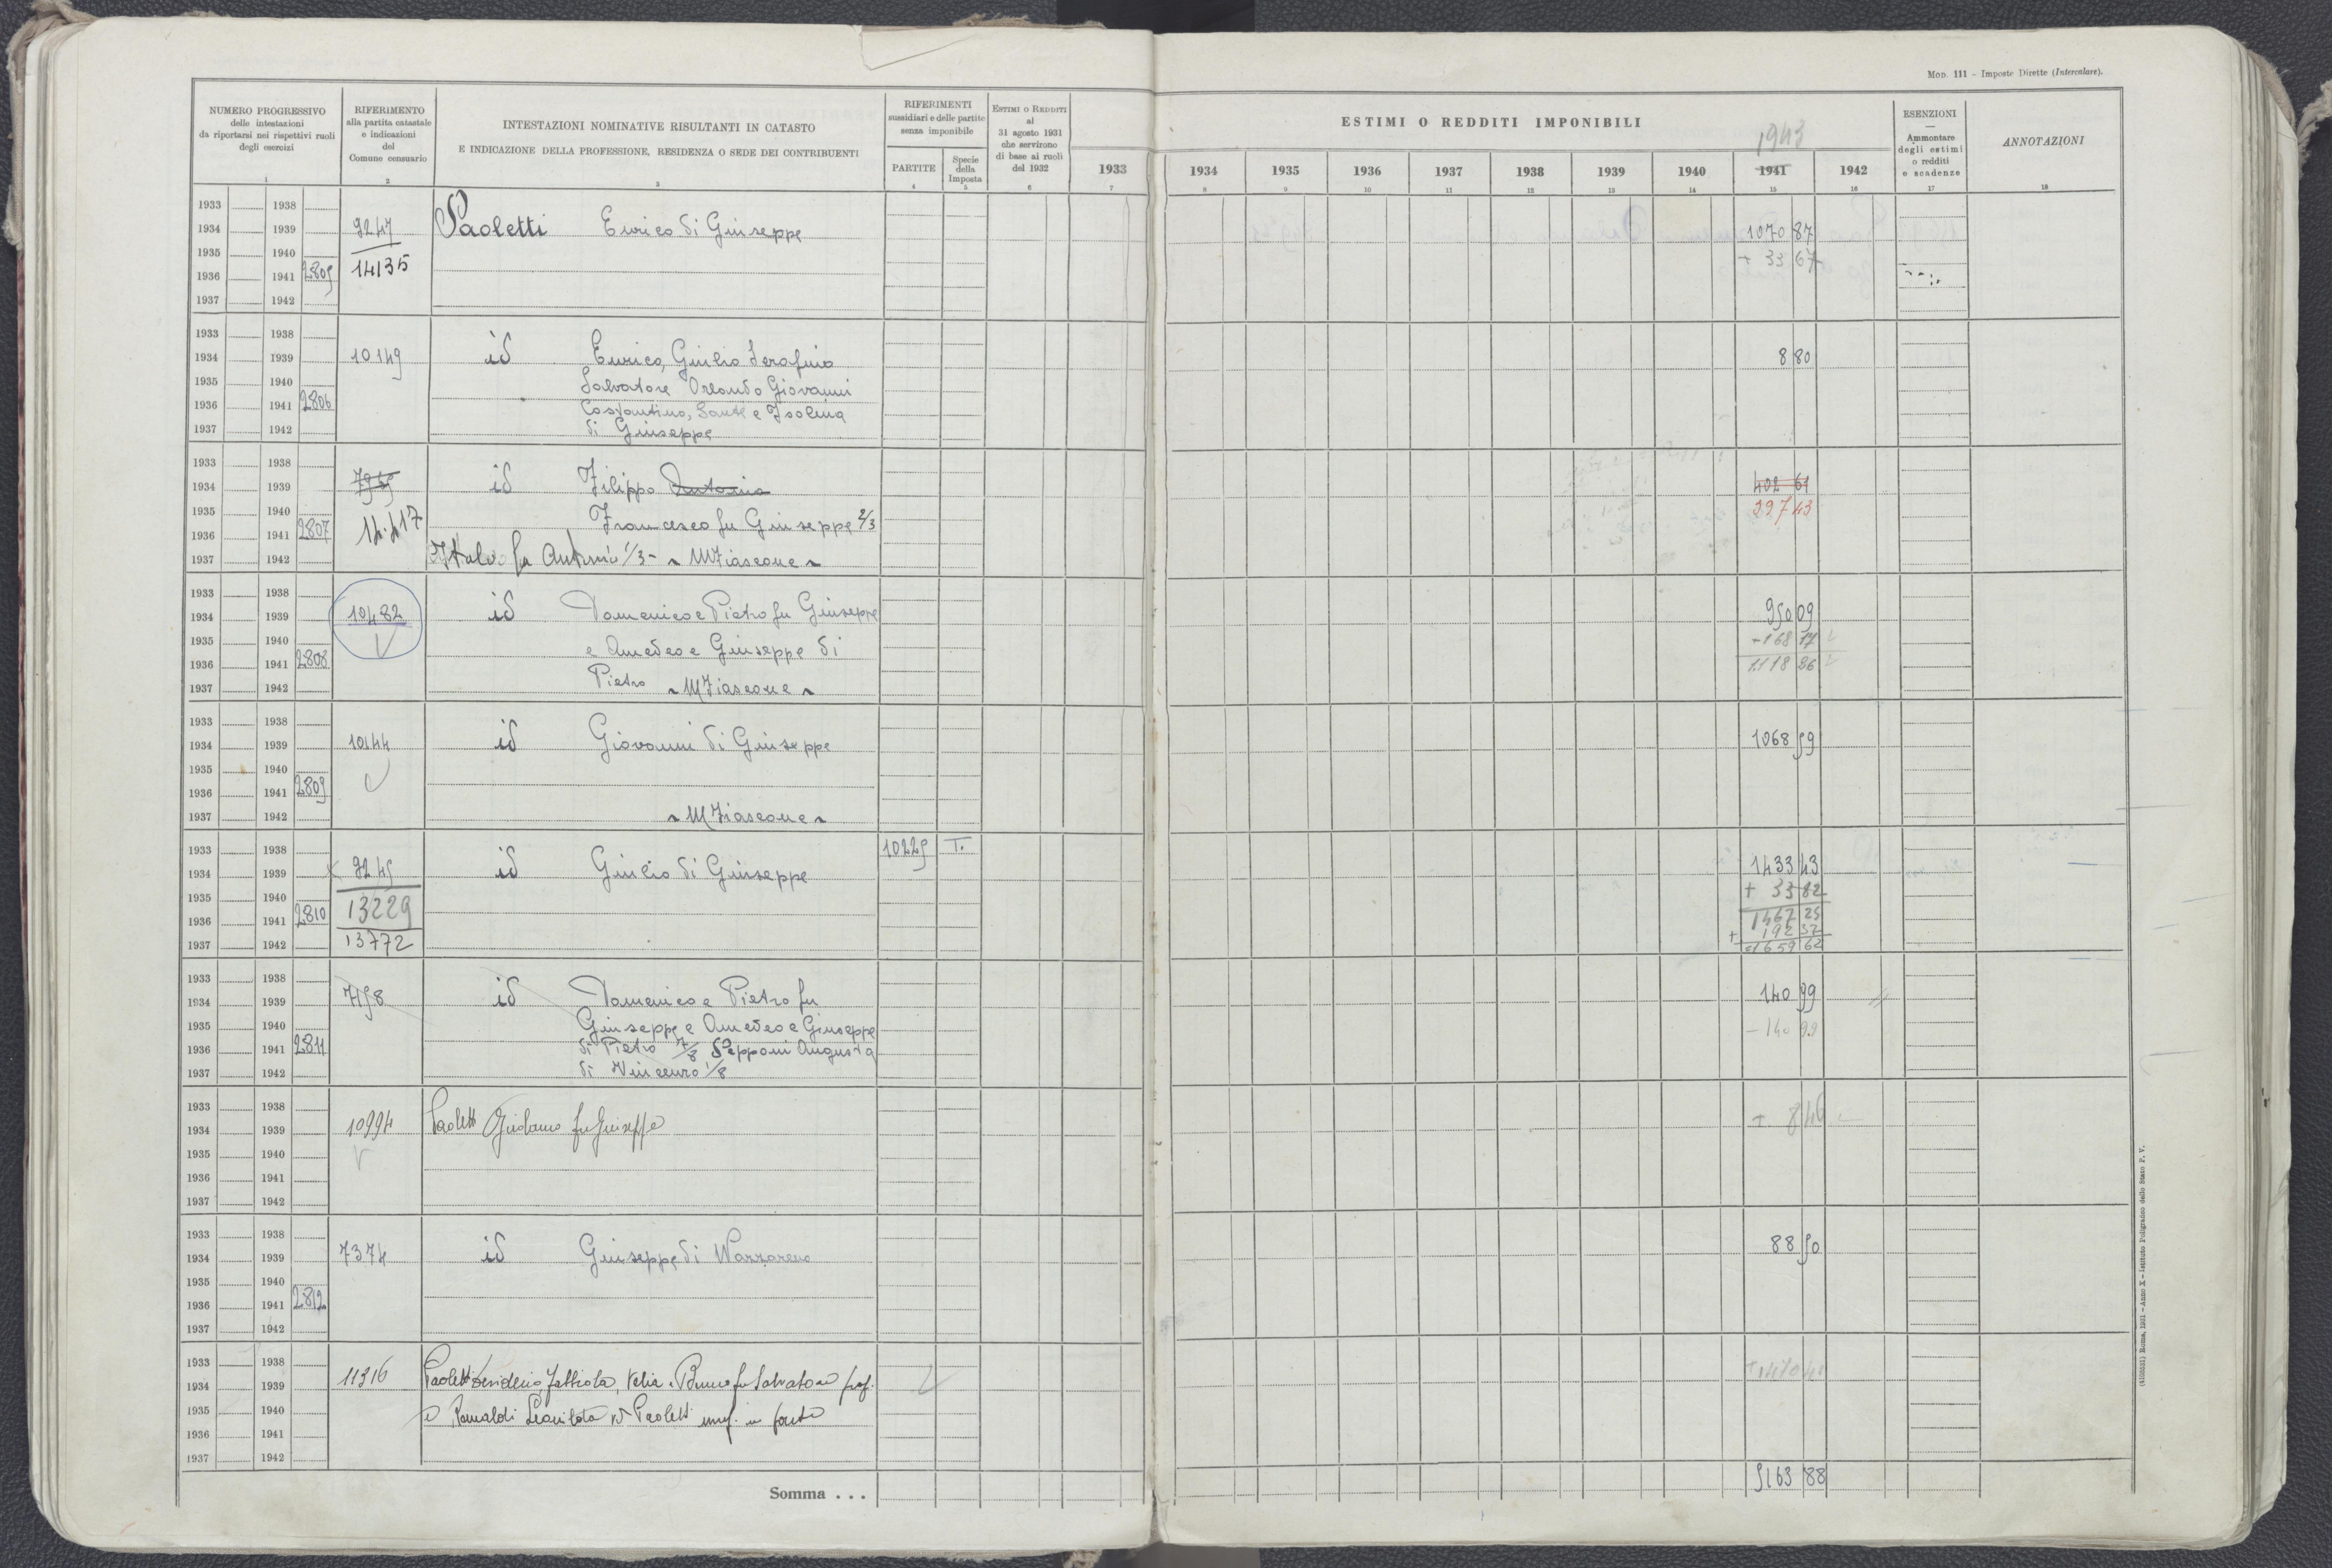 Mod. 111 - Imposte Dirette (Intercalare).
NUMERO PROGRESSIVO
delle intestazioni
da riportarsi nei rispettivi ruoli
degli esercizi
1
RIFERIMENTO
alla partita catastale
e indicazioni
del
Comune censuario
2
INTESTAZIONI NOMINATIVE RISULTANTI IN CATASTO
E INDICAZIONE DELLA PROFESSIONE, RESIDENZA O SEDE DEI CONTRIBUENTI
3
RIFERIMENTI
sussidiari e delle partite
senza imponibile
PARTITE
4
Specie
della
Imposta
5
ESTIMI O REDDITI
al
31 agosto 1931
che servirono
di base ai ruoli
del 1932
6
ESTIMI O REDDITI IMPONIBILI
1943
1933 1934 1935 1936 1937 1938 1939 1940 1941 1942
7 8 9 10 11 12 13 14 15 16
ESENZIONI
—
Ammontare
degli estimi
o redditi
e scadenze
17
ANNOTAZIONI
18
1933 1938
1934 1939 9247 Paoletti Enrico di Giuseppe 1070 87
1935 1940 + 33 67
1936 1941 2805 14135
1937 1942
1933 1938
1934 1939 10149 id Enrico, Giulio Serafino 8 80
1935 1940 Salvatore Orlando Giovanni
1936 1941 2806 Costantino, Sante e Isolina
1937 1942 di Giuseppe
1933 1938
1934 1939 id Filippo Antonio 402 61
1935 1940 Francesco fu Giuseppe 2/3 397 43
1936 1941 2807 14.417
1937 1942 Italo fu Antonio 1/3 - M Fiascone
1933 1938
1934 1939 10482 id Domenico e Pietro fu Giuseppe 950 09
1935 1940 e Amedeo e Giuseppe di - 168 77
1936 1941 2808 1118 86
1937 1942 Pietro M Fiascone
1933 1938
1934 1939 10144 id Giovanni di Giuseppe 1068 59
1935 1940
1936 1941 2809
1937 1942 M Fiascone
1933 1938 10225 T.
1934 1939 9245 id Giulio di Giuseppe 1433 43
1935 1940 13229 + 33 82
1936 1941 2810 1467 25
+ 192 37
1937 1942 13772 1659 62
1933 1938
1934 1939 7158 id Domenico e Pietro fu 140 99
1935 1940 Giuseppe e Amedeo e Giuseppe - 140 99
1936 1941 2811 di Pietro 7/8 Sepponi Augusta
1937 1942 di Vincenzo 1/8
1933 1938
1934 1939 10994 Paoletti Girolamo fu Giuseppe + 8 46
1935 1940
1936 1941
1937 1942
1933 1938
1934 1939 7374 id Giuseppe di Nazzareno 88 50
1935 1940
1936 1941 2812
1937 1942
1933 1938
1934 1939 11316 Paoletti Desiderio, Velia e Bruno fu Salvatore prop.
1935 1940 e Leonilda Paoletti usuf. in parte
1936 1941
1937 1942
Somma . . . 5163 88
Roma, 1931 - Anno X - Istituto Poligrafico dello Stato P. V.